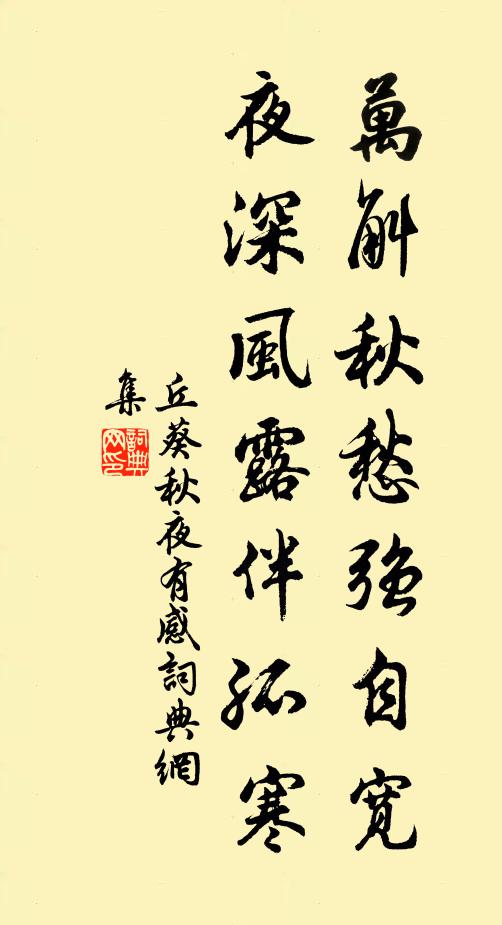 萬斛秋愁強自寬
夜深風露伴孤寒
丘葵秋夜有感詞典網
集
詞典
网印